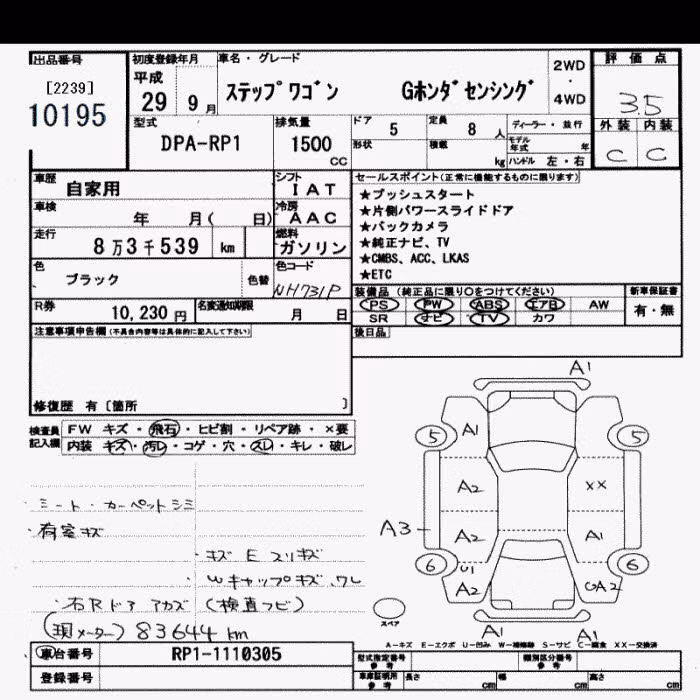 出品番号
[2239]
10195
初度登録年月
平成
29 9月
車名・グレード
ステップワゴン Gホンダセンシング
2WD
・
4WD
評価点
3.5
外装 内装
C C
型式
DPA-RP1
排気量
1500
cc
ドア 5
定員 8 人
形状
積載 kg
ディーラー・並行
モデル年式 年
ハンドル 左・右
車歴
自家用
シフト
IAT
車検
年 月( 日)
冷房
AAC
走行
8万3千539 km
燃料
ガソリン
色
ブラック
色替
色コード
NH731P
R券
10,230円
名変通知期限
月 日
セールスポイント(正常に機能するものに限ります)
★プッシュスタート
★片側パワースライドドア
★バックカメラ
★純正ナビ、TV
★CMBS、ACC、LKAS
★ETC
装備品(純正品に限り○をつけてください)
PS PW ABS エアB AW
SR ナビ TV カワ
新車保証書
有・無
後日品
注意事項申告欄(不具合内容等は具体的に記入して下さい)
修復歴 有〔箇所 〕
検査員記入欄
FW キズ・飛石・ヒビ割・リペア跡・×要
内装 キズ・汚レ・コゲ・穴・スレ・キレ・破レ
・シート・カーペットシミ
・荷室キズ
・キズ E スリキズ
・Wキャップキズ、ワレ
・右Rドア アカズ(検査フビ)
(現メーター) 83644 km
A1
5 A1 5
A2 XX
A3 A2 A1
6 U1 A2 GA2 6
A1 A1
スペア
A-キズ E-エクボ U-凹み W-補修跡 S-サビ C-腐食 XX-交換済
車台番号
RP1-1110305
登録番号
型式指定番号 参考
類別区分番号 参考
車庫証明用 参考
長さ cm
幅 cm
高さ cm